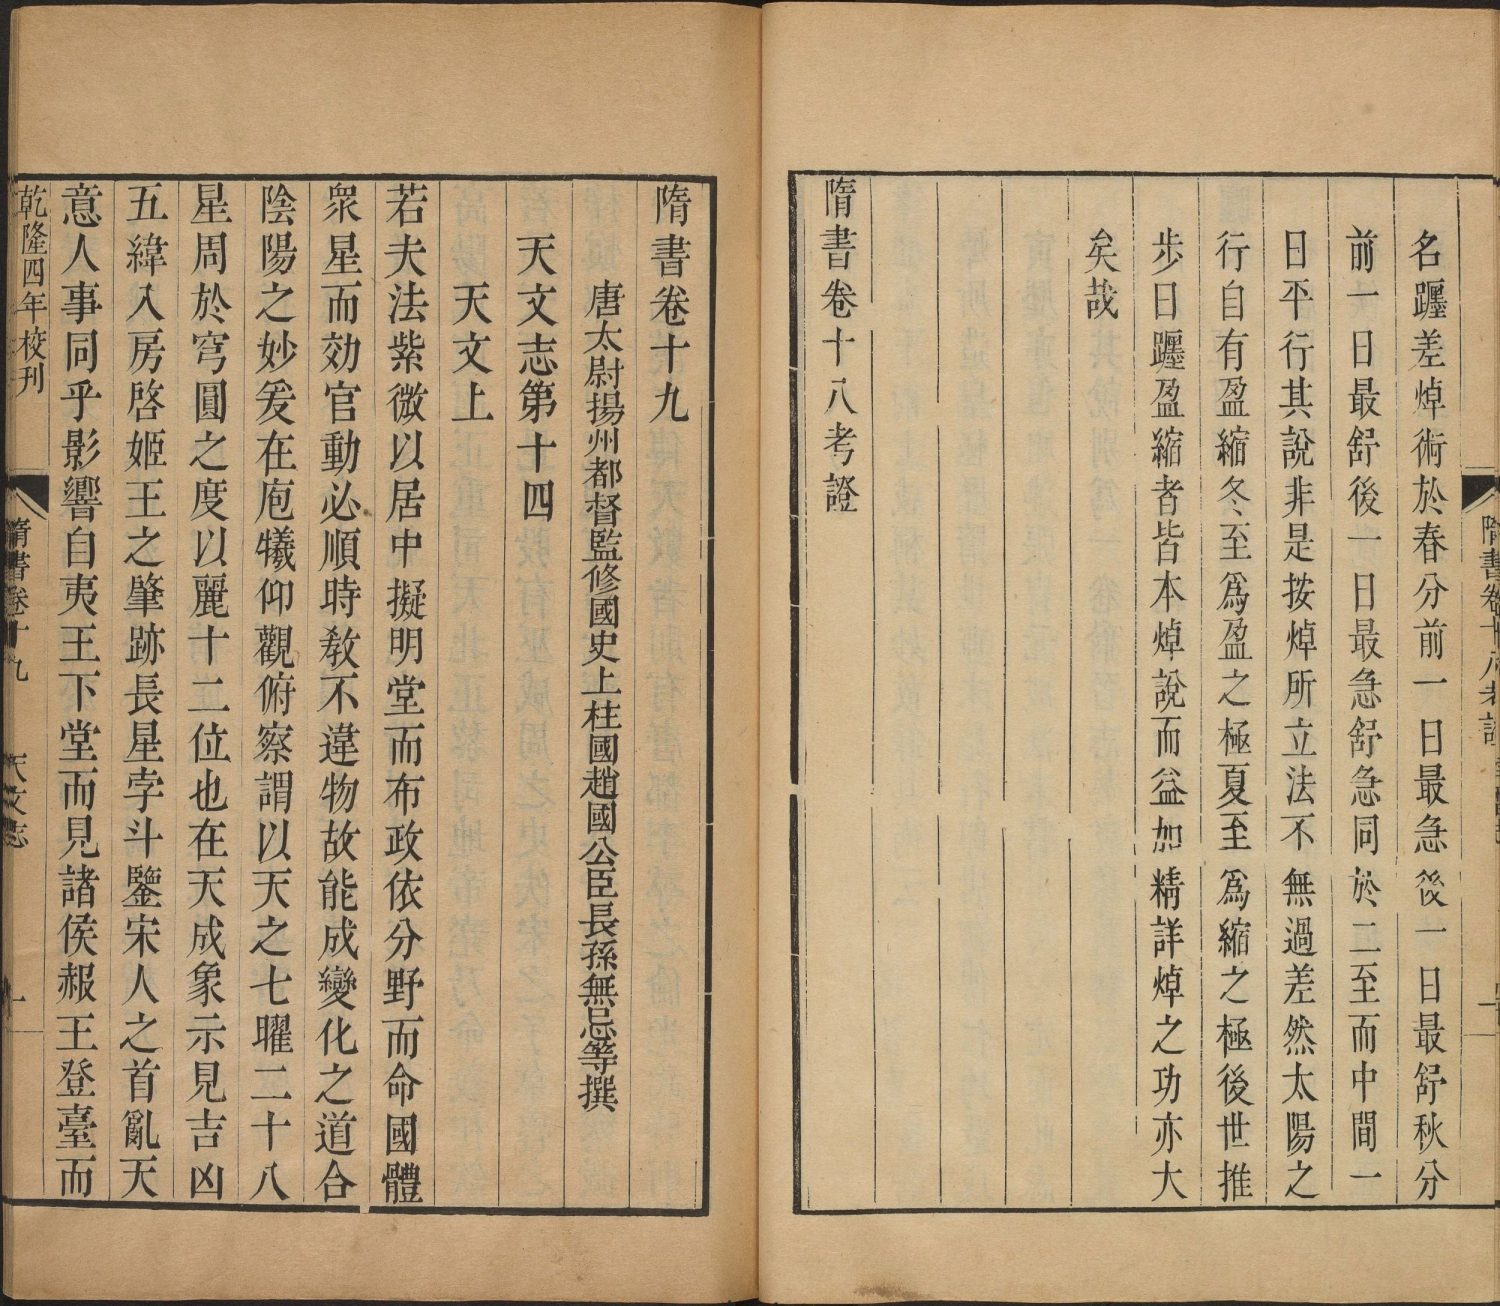 隋書卷十八考證
名躔差焯術於春分前一日最急後一日最舒秋分
前一日最舒後一日最急舒急同於二至而中間一
日平行其說非是按焯所立法不無過差然太陽之
行自有盈縮冬至爲盈之極夏至爲縮之極後世推
步日躔盈縮者皆本焯說而益加精詳焯之功亦大
矣哉
隋書卷十八考證
隋書卷十九
唐太尉揚州都督監修國史上柱國趙國公臣長孫無忌等撰
天文志第十四
天文上
若夫法紫微以居中擬明堂而布政依分野而命國體
衆星而効官動必順時教不違物故能成變化之道合
陰陽之妙爰在庖犧仰觀俯察謂以天之七曜二十八
星周於穹圓之度以麗十二位也在天成象示見吉凶
五緯入房啓姬王之肇跡長星孛斗鑒宋人之首亂天
意人事同乎影響自夷王下堂而見諸侯赧王登臺而
乾隆四年校刊
隋書卷十九
天文志
一